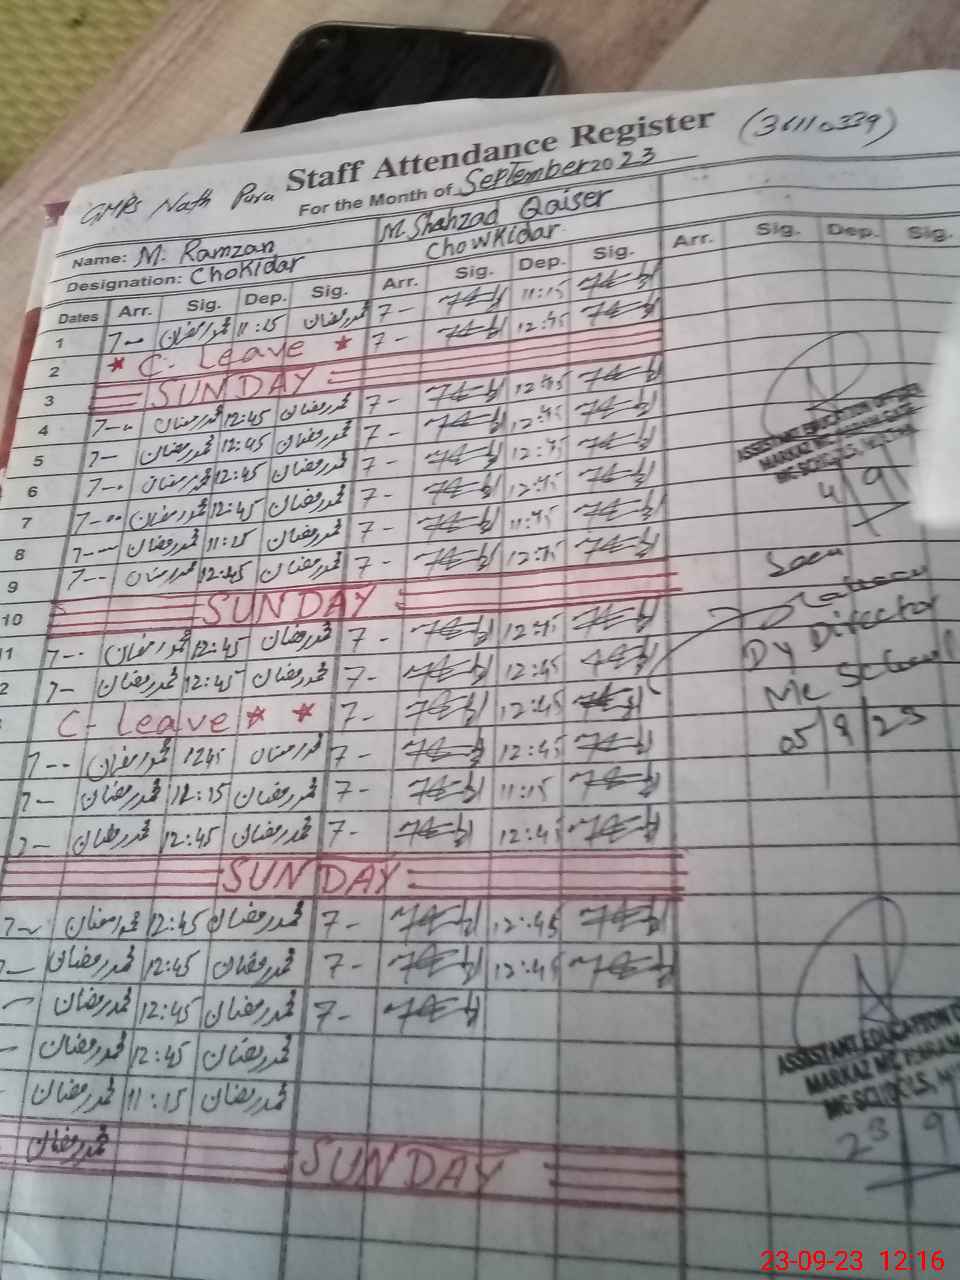 Staff Attendance Register (36110339)
GMPS Nath Pura For the Month of September 2023
Name: M. Ramzan M. Shahzad Qaiser
Designation: Chokidar Chowkidar
Dates Arr. Sig. Dep. Sig. Arr. Sig. Dep. Sig. Arr. Sig. Dep. Sig.
1 7-- محمد رمضان 11:15 محمد رمضان 7- 11:15
2 * C. Leave * 7- 12:45
3 SUNDAY
4 7-- محمد رمضان 12:45 محمد رمضان 7- 12:45
5 7- محمد رمضان 12:45 محمد رمضان 7- 12:45
6 7-- محمد رمضان 12:45 محمد رمضان 7- 12:45
7 7-- محمد رمضان 12:45 محمد رمضان 7- 12:45
8 7-- محمد رمضان 11:15 محمد رمضان 7-
9 7-- محمد رمضان 12:45 محمد رمضان 7- 12:45
10 SUNDAY
11 7-- محمد رمضان 12:45 محمد رمضان 7- 12:45
2 7- محمد رمضان 12:45 محمد رمضان 7- 12:45
C- Leave * * 7- 12:45
7-- محمد رمضان 1245 محمد رمضان 7- 12:45
7- محمد رمضان محمد رمضان 7- 11:15
محمد رمضان 12:45 محمد رمضان 7- 12:45
SUNDAY
7- محمد رمضان 12:45 محمد رمضان 7- 12:45
محمد رمضان 12:45 محمد رمضان 7- 12:45
محمد رمضان 12:45 محمد رمضان 7-
محمد رمضان 12:45 محمد رمضان
محمد رمضان 11:15 محمد رمضان
محمد رمضان SUNDAY
ASSISTANT EDUCATION OFFICER
MARKAZ MC
MC SCHOOLS,
4 9
Seen
Dy Director
Mc School
05/9/23
ASSISTANT EDUCATION
MARKAZ MC
MC SCHOOLS,
23 9
23-09-23 12:16